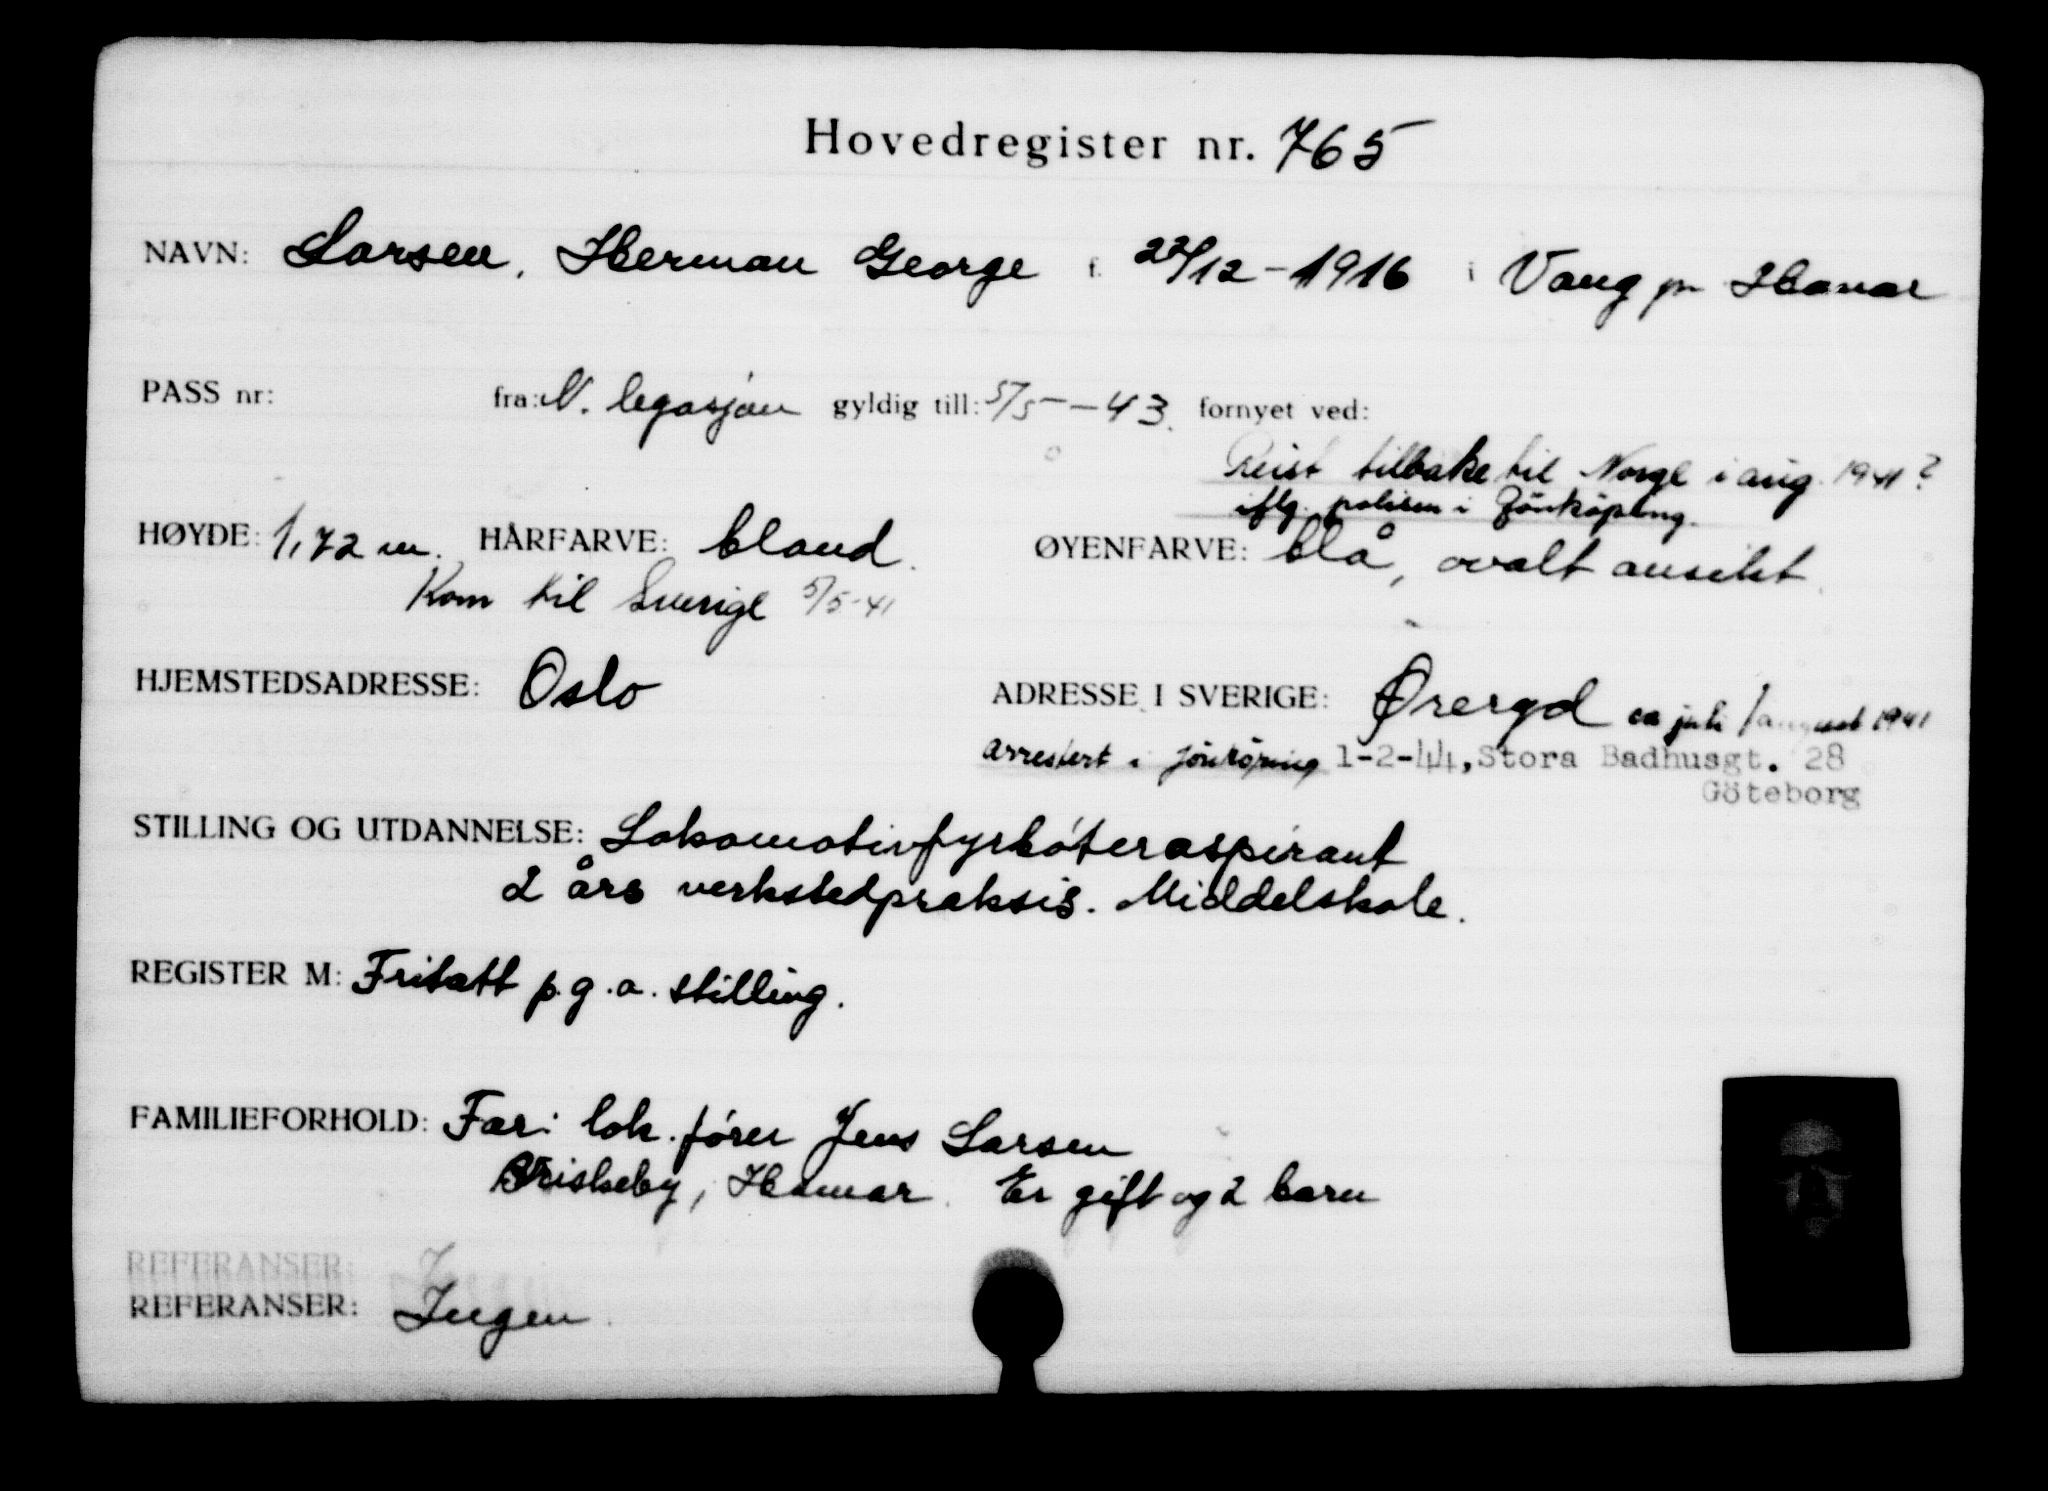 Hovedregister nr. 765
NAVN: Larsen, Herman George f. 22/12-1916 i Vang pr Hamar
PASS nr: fra: N. legasjon gyldig till: 5/5-43. fornyet ved:
Reist tilbake til Norge i aug. 1941?
iflg. polisen i Jönköping.
HØYDE: 1,72 m. HÅRFARVE: blond. ØYENFARVE: blå, ovalt ansikt.
Kom til Sverige 5/5-41
HJEMSTEDSADRESSE: Oslo ADRESSE I SVERIGE: Øreryd ca juli/august 1941
arrestert i Jönköping 1-2-44, Stora Badhusgt. 28
Göteborg
STILLING OG UTDANNELSE: Lokomotivfyrbøteraspirant
2 års verkstedpraksis. Middelskole.
REGISTER M: Fritatt p.g.a. stilling.
FAMILIEFORHOLD: Far: lok. fører Jens Larsen
Briskeby, Hamar. Er gift og 2 barn
REFERANSER:
REFERANSER: Ingen.